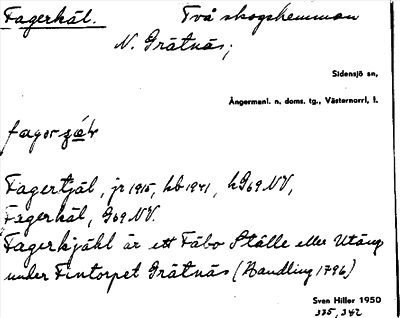 Fagerkäl. Två skogshemman
N. Grätnäs;
Sidensjö sn,
Ångermanl. n. doms. tg., Västernorrl, l.
Fagertjäl, jr 1915, hb 1941, hG69 NV,
Fagerkäl, G69 NV.
Fagerkjähl är ett Fäbo Ställe eller Utäng
under Fintorpet Grätnäs (Handling 1796)
Sven Hiller 1950
335, 342